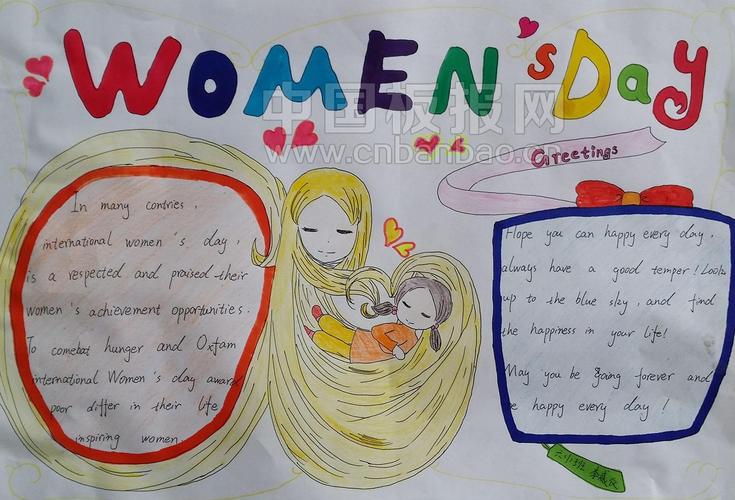 WOMEN'S Day
中国板报网
www.cnbanbao.cn
Greetings
In many contries,
international women's day,
is a respected and praised their
women's achievement opportunities.
To comebat hunger and Oxfam
international Women's day award
poor differ in their life
inspiring women
Hope you can happy every day,
always have a good temper! Look
up to the blue sky, and find
the happiness in your life!
May you be young forever and
be happy every day!